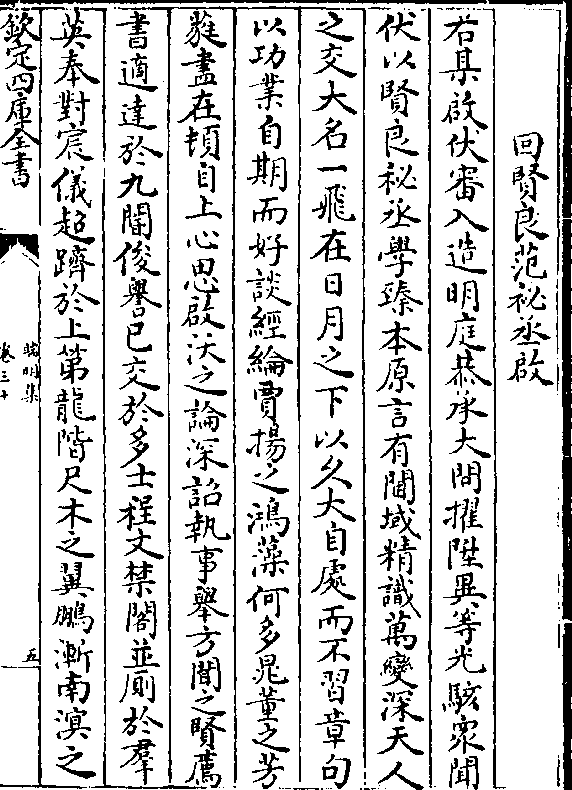 回賢良范祕丞啟
右某啟伏審入造明庭恭承大問擢陞異等光駭衆聞
伏以賢良祕丞學臻本原言有閫域精識萬變深天人
之交大名一飛在日月之下以久大自處而不習章句
以功業自期而好談經綸賈揚之鴻藻何多晁董之芳
蕤盡在頃自上心思啟沃之論深詔執事舉方聞之賢薦
書適達於九閽俊譽已交於多士程文禁閣並厠於羣
英奉對宸儀超躋於上第龍階尺木之翼鵬漸南溟之
欽定四庫全書
卷三十
五